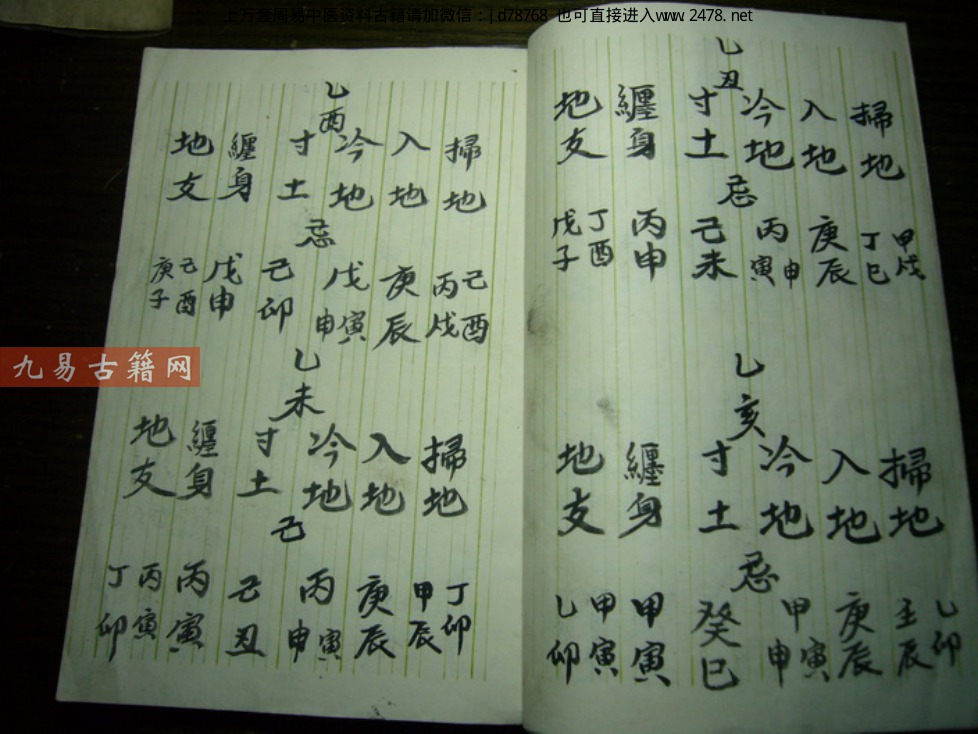 上万套周易中医资料古籍请加微信：|d78768 也可直接进入www.2478.net
乙丑
掃地
入地
冷地
寸土
纏身
地支
忌
甲戌
丁巳
庚辰
丙寅申
己未
丙申
丁酉
戊子
乙亥
掃地
入地
冷地
寸土
纏身
地支
忌
乙卯
壬辰
庚辰
甲寅申
癸巳
甲寅
甲寅
乙卯
乙酉
掃地
入地
冷地
寸土
纏身
地支
忌
己酉
丙戌
庚辰
戊寅申
己卯
戊申
己酉
庚子
乙未
掃地
入地
冷地
寸土
纏身
地支
己
丁卯
甲辰
庚辰
丙寅申
己丑
丙寅
丙寅
丁卯
九易古籍网